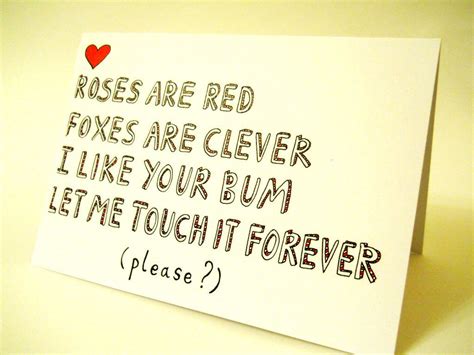 ROSES ARE RED
FOXES ARE CLEVER
I LIKE YOUR BUM
LET ME TOUCH IT FOREVER
(please?)